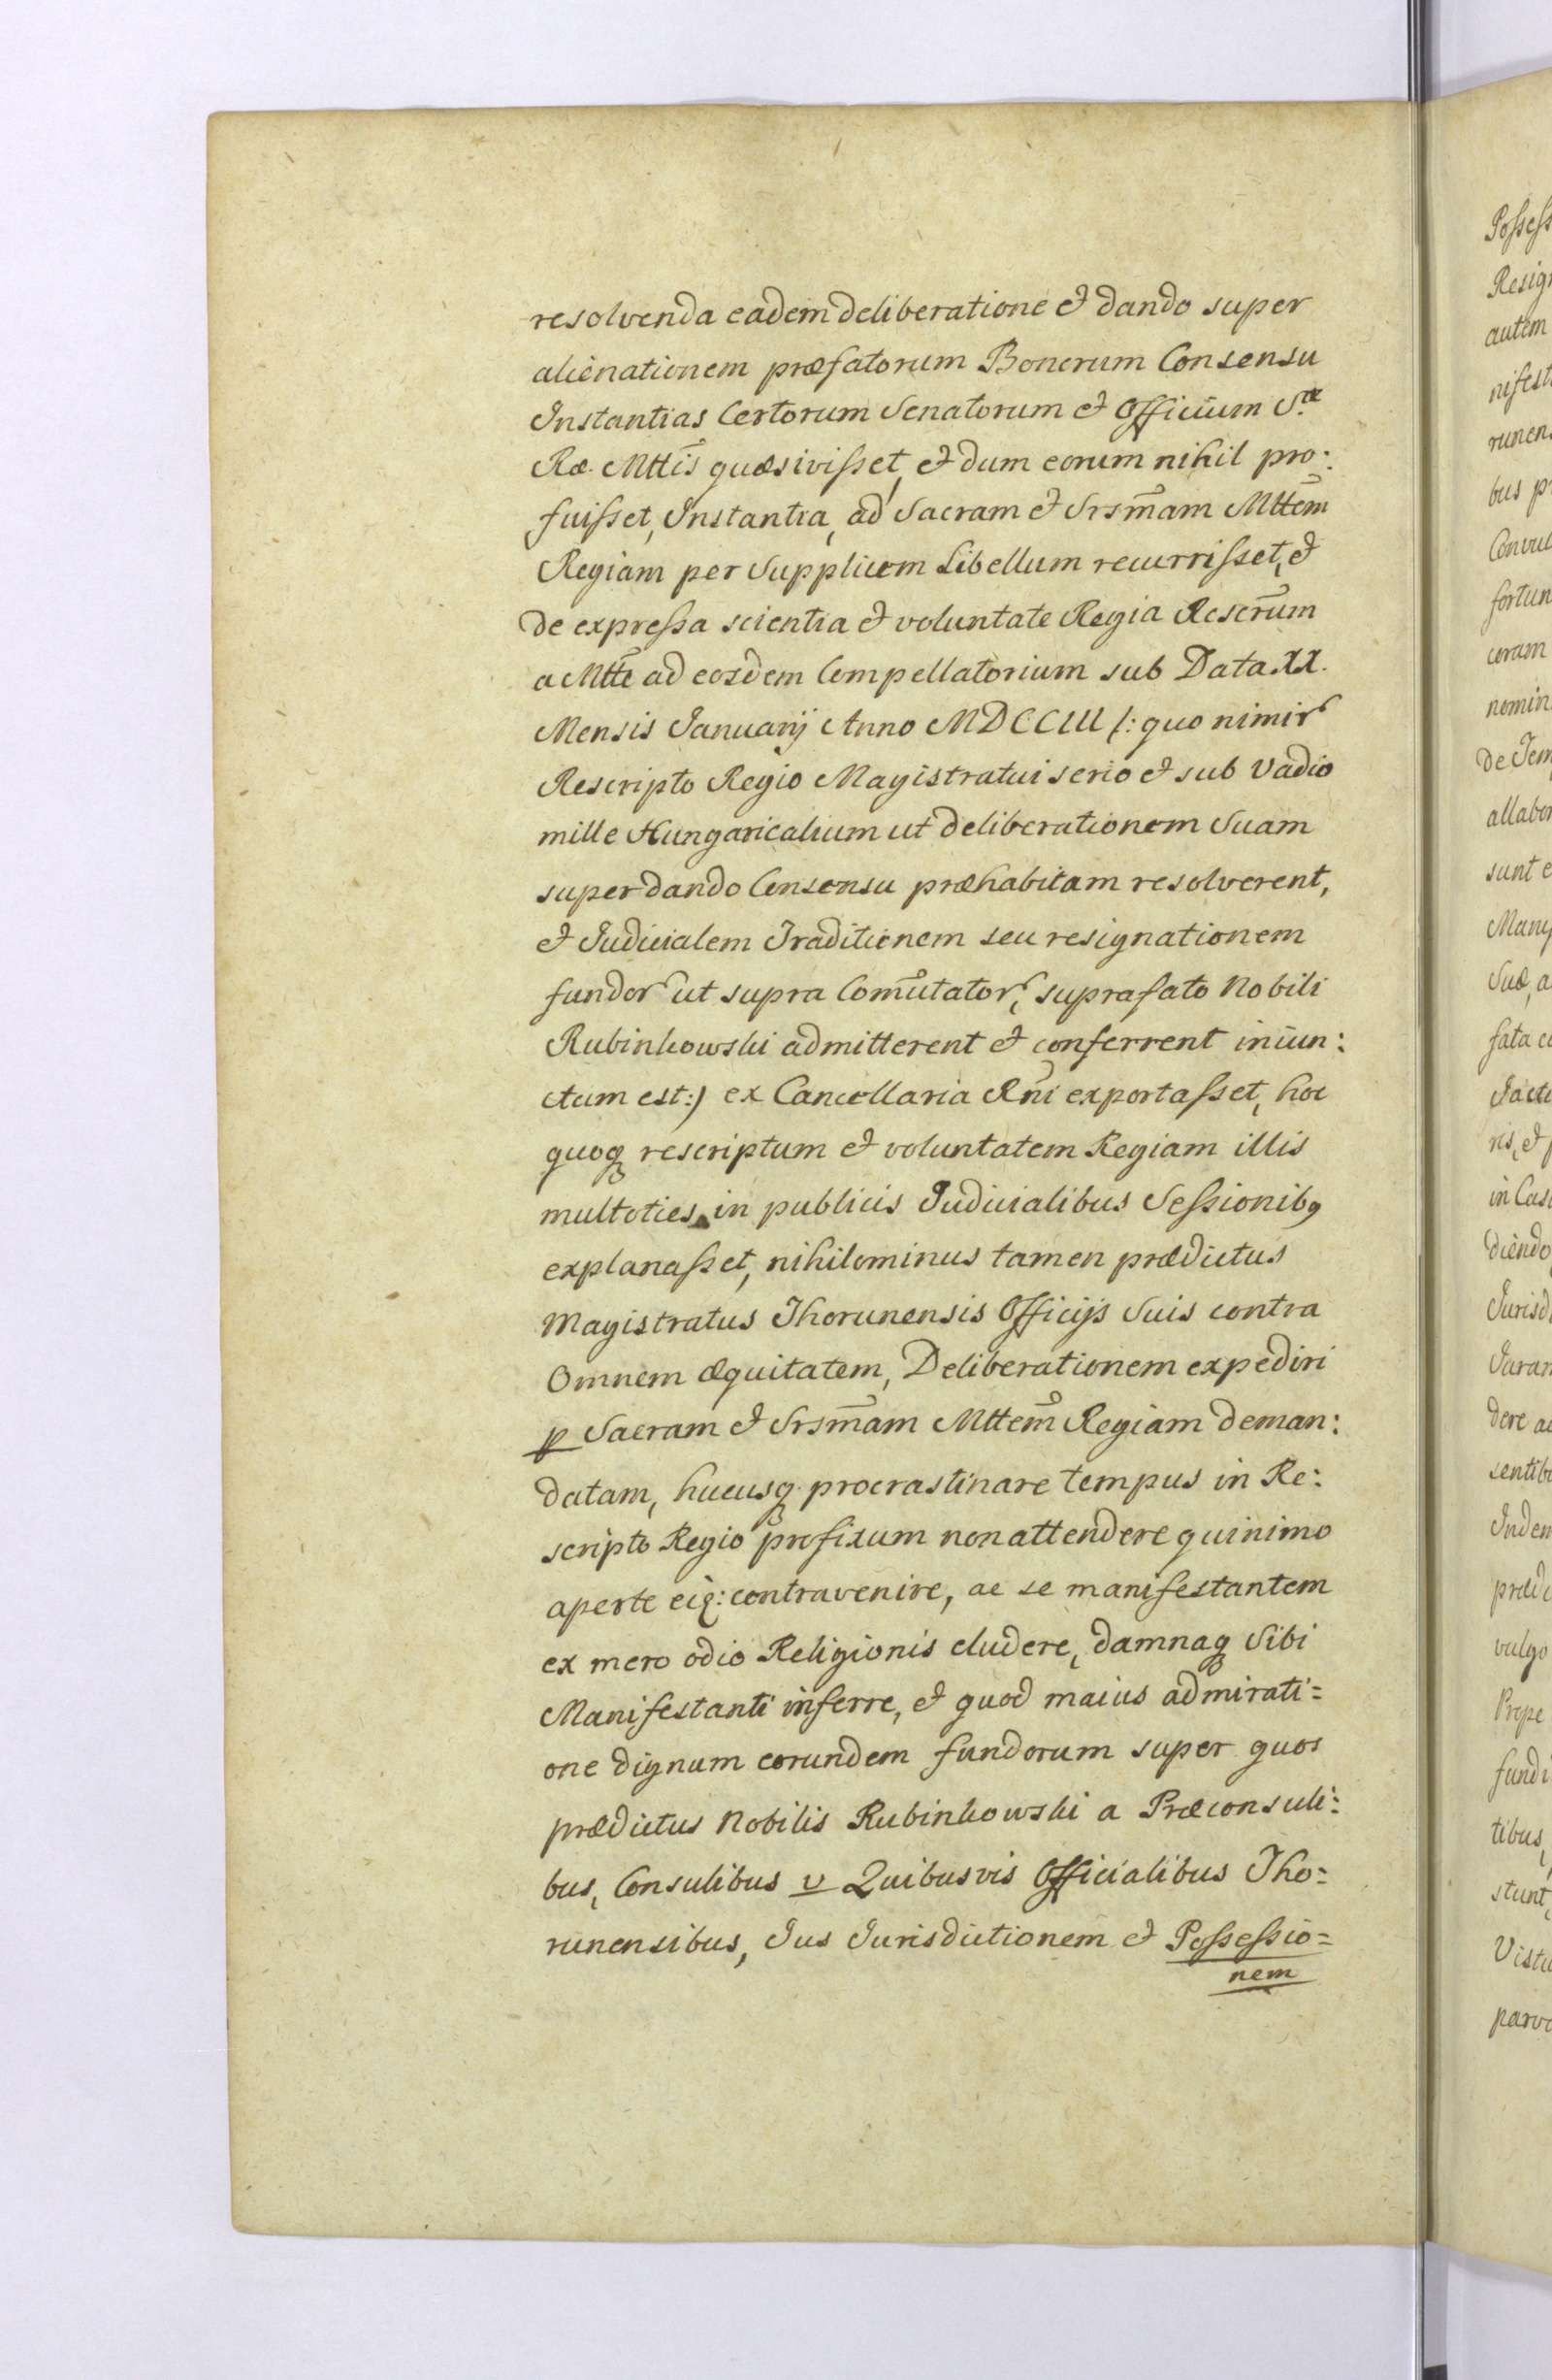 resolvenda eadem deliberatione et dando super
alienationem præfatorum Bonorum Consensu
Instantias Certorum Senatorum et Officium S.æ
Ræ. Mttis quæsivisset, et dum eorum nihil pro:
fuisset, Instantia, ad Sacram et Srsm̃am Mttem
Regiam per Supplicem Libellum recurrisset, et
de expressa scientia et voluntate Regia Rescr̃um
a Mtte ad eosdem Compellatorium sub Data XX.
Mensis Januarij Anno MDCCIII /: quo nimir
Rescripto Regio Magistratui serio et sub Vadio
mille Hungaricalium ut deliberationem Suam
super dando Consensu præhabitam resolverent,
et Judicialem Traditionem seu resignationem
fundor ut supra Com̃utator, suprafato Nobili
Rubinkowski admitterent et conferrent iniun:
ctum est:) ex Cancellaria Rñi exportasset, hoc
quoq rescriptum et voluntatem Regiam illis
multoties in publicis Judicialibus Sessionib9
explanasset, nihilominus tamen prædictus
Magistratus Thorunensis Officijs Suis contra
Omnem æquitatem, Deliberationem expediri
p Sacram et Srsm̃am Mttem̃ Regiam deman:
datam, hucusq procrastinare tempus in Re:
scripto Regio præfixum non attendere quinimo
aperte eiq: contravenire, ac se manifestantem
ex mero odio Religionis eludere, damnaq Sibi
Manifestanti inferre, et quod maius admirati=
one dignum eorundem fundorum super quos
prædictus Nobilis Rubinkowski a Præconsuli:
bus, Consulibus v Quibusvis Officialibus Tho=
runensibus, Jus Jurisdictionem et Possessio=
nem